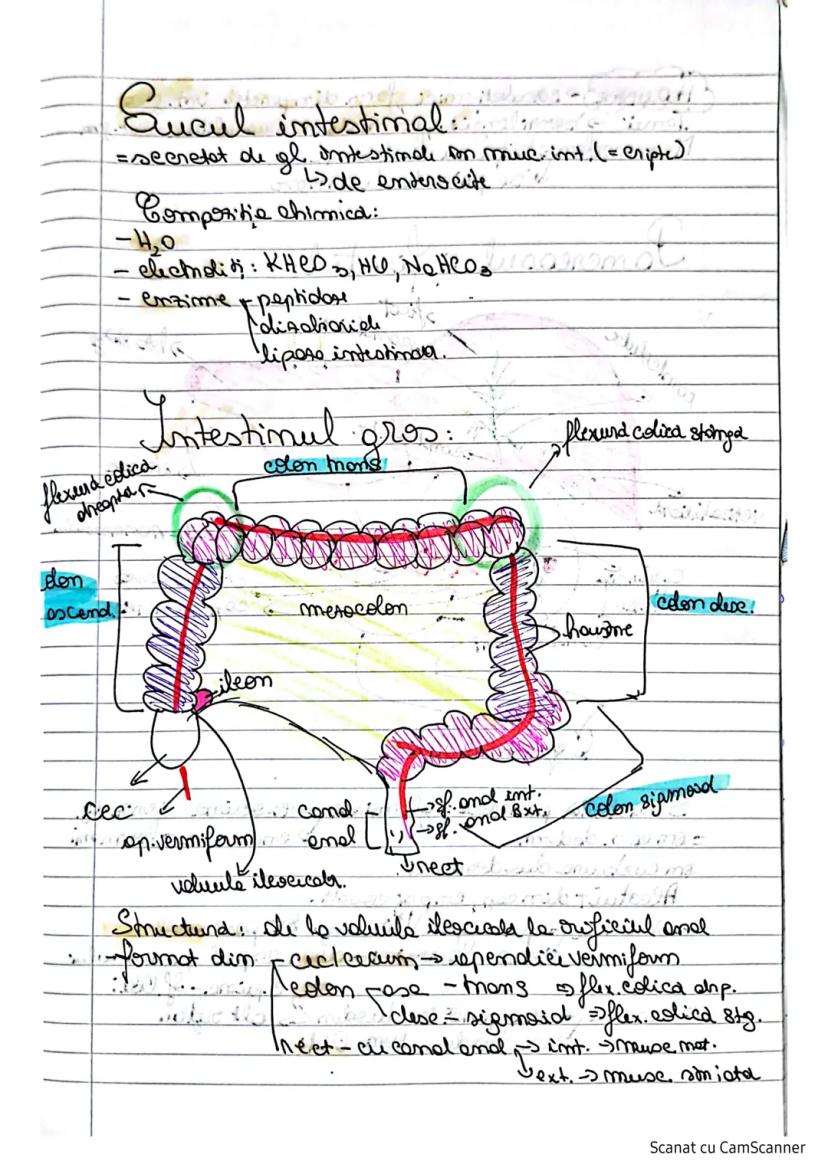 Sucul intestinal:
= secretat de gl. intestinale în muc. int. (= cripte)
↳ de enterocite
Compoziție chimică:
- H₂O
- electroliți: KHCO₃, HCl, NaHCO₃
- enzime - peptidaze
dizaharide
lipaza intestinală.
Intestinul gros:
flexura colică stângă
colon trans
flexura colică dreaptă
colon ascend.
mezocolon
colon desc.
haustre
ileon
cec
ap. vermiform
valvula ileocecală.
canal anal
→ sf. anal int.
→ sf. anal ext.
rect
colon sigmoid
Structura: de la valvula ileocecală la orificiul anal
- format din - cec/cecum → apendice vermiform
colon - asc - trans ⇒ flex. colica drp.
desc - sigmoid ⇒ flex. colica stg.
rect - cu canal anal → int. → musc. net.
ext. → musc. striată
Scanat cu CamScanner